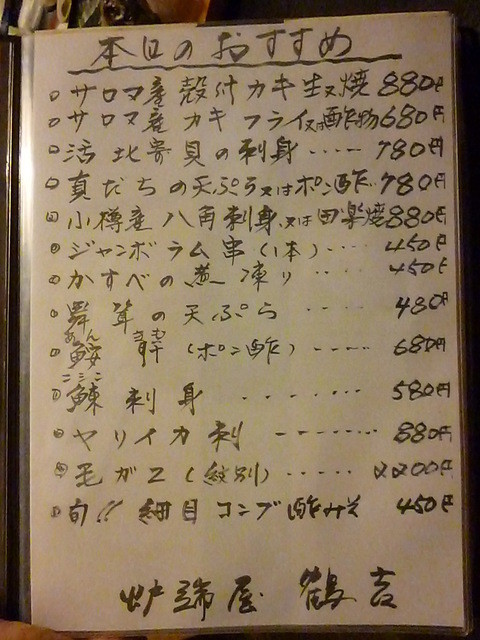 本日のおすすめ
サロマ産 殻付カキ 生又焼 880円
サロマ産 カキ フライ又は酢物 680円
活北寄貝の刺身 ‥‥ 780円
真だちの天ぷら又はポン酢‥ 780円
小樽産 八角刺身又は田楽焼 880円
ジャンボラム串(1本)‥‥ 450円
かすべの煮凍り ‥‥ 450円
舞茸の天ぷら ‥‥ 480円
あん きも
鮟 肝 (ポン酢) ‥‥‥ 680円
鰊 刺 身 ‥‥‥ 580円
ヤリイカ刺 ‥‥‥ 880円
毛ガニ(姿別)‥‥‥ 2200円
旬!! 細目コンブ酢みそ 450円
炉端屋 鶴吉